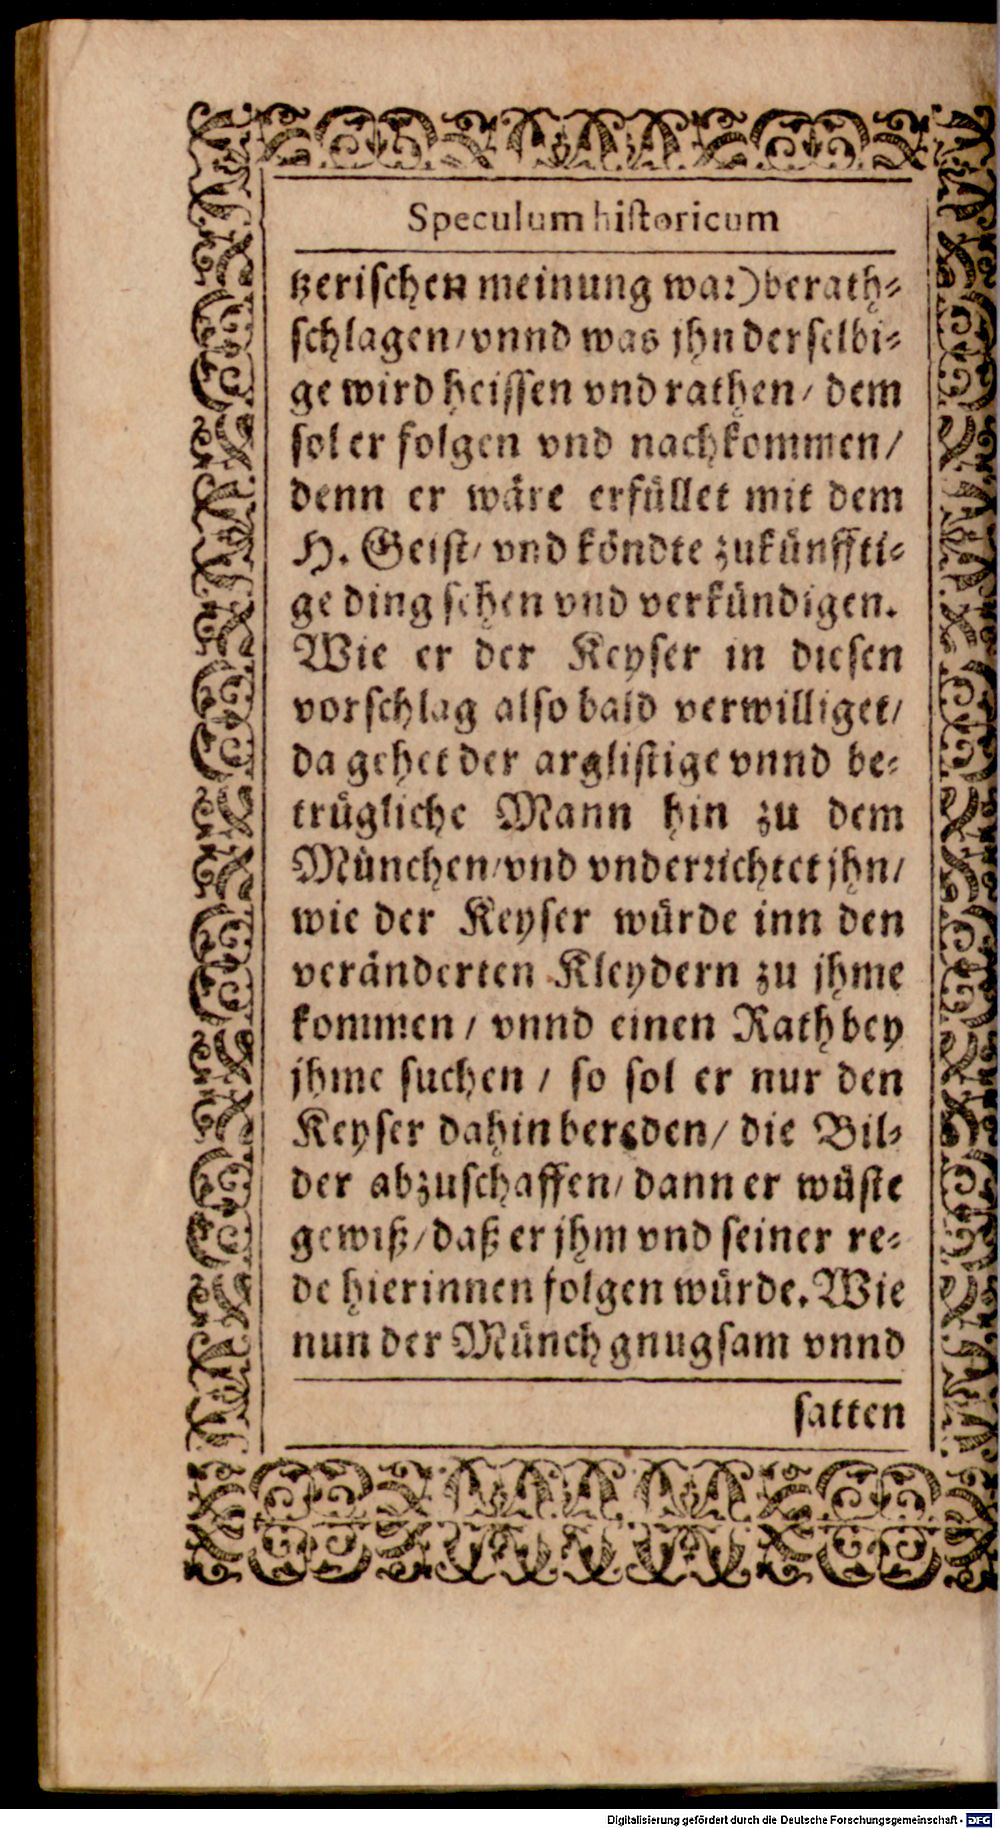 Speculum historicum
tzerischen meinung war) berath⸗
schlagen/ vnnd was jhn derselbi⸗
ge wird heissen vnd rathen/ dem
sol er folgen vnd nachkommen/
denn er wäre erfüllet mit dem
H. Geist/ vnd köndte zukünffti⸗
ge ding sehen vnd verkündigen.
Wie er der Keyser in diesen
vorschlag also bald verwilliget/
da gehet der arglistige vnnd be⸗
trügliche Mann hin zu dem
München/ vnd vnderrichtet jhn/
wie der Keyser würde inn den
veränderten Kleydern zu jhme
kommen / vnnd einen Rath bey
jhme suchen / so sol er nur den
Keyser dahin bereden/ die Bil⸗
der abzuschaffen/ dann er wüste
gewiß/ daß er jhm vnd seiner re⸗
de hierinnen folgen würde. Wie
nun der Münch gnugsam vnnd
satten
Digitalisierung gefördert durch die Deutsche Forschungsgemeinschaft - DFG